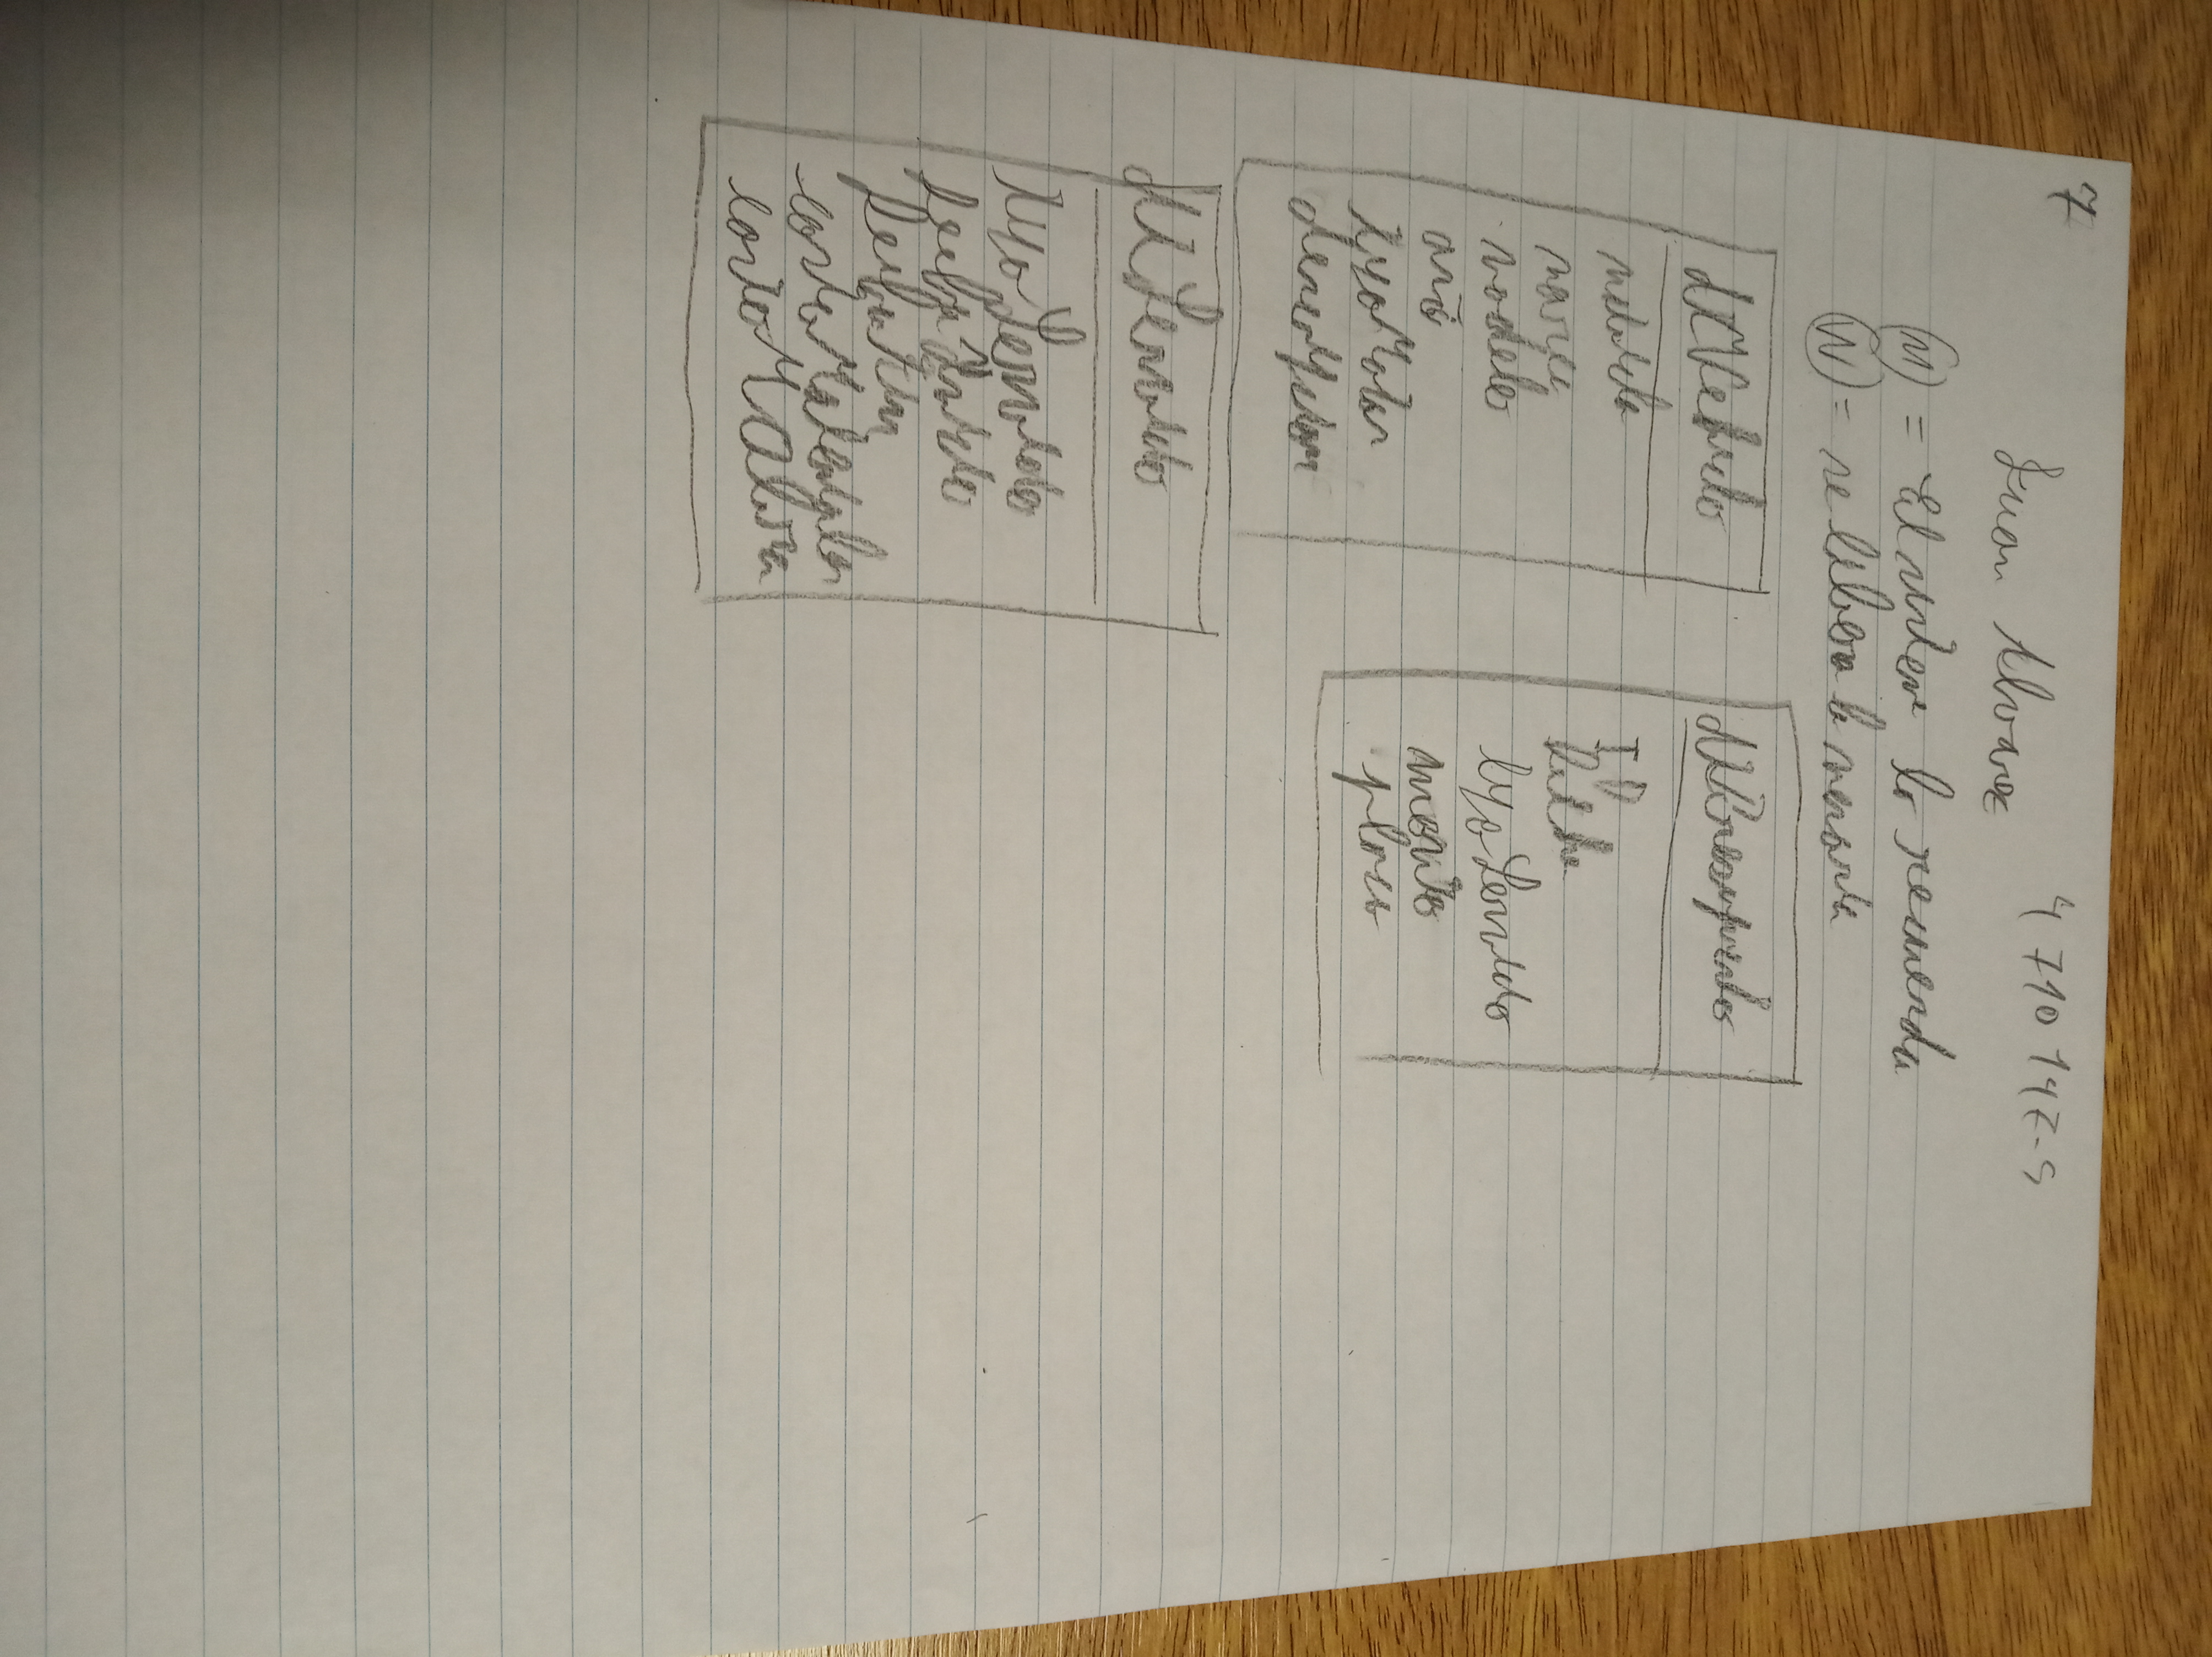 7
Juan Alvarez
4 710 147-5
(M) = El sistema lo recuerda
(W) = se libera la memoria
dtVehiculo
matricula
marca
modelo
año
tipoMotor
descripcion
dtPresupuesto
ID
fecha
tipoServicio
monto
plazo
dtServicio
tipoServicio
fechaInicio
fechaFin
costoMateriales
costoMObra